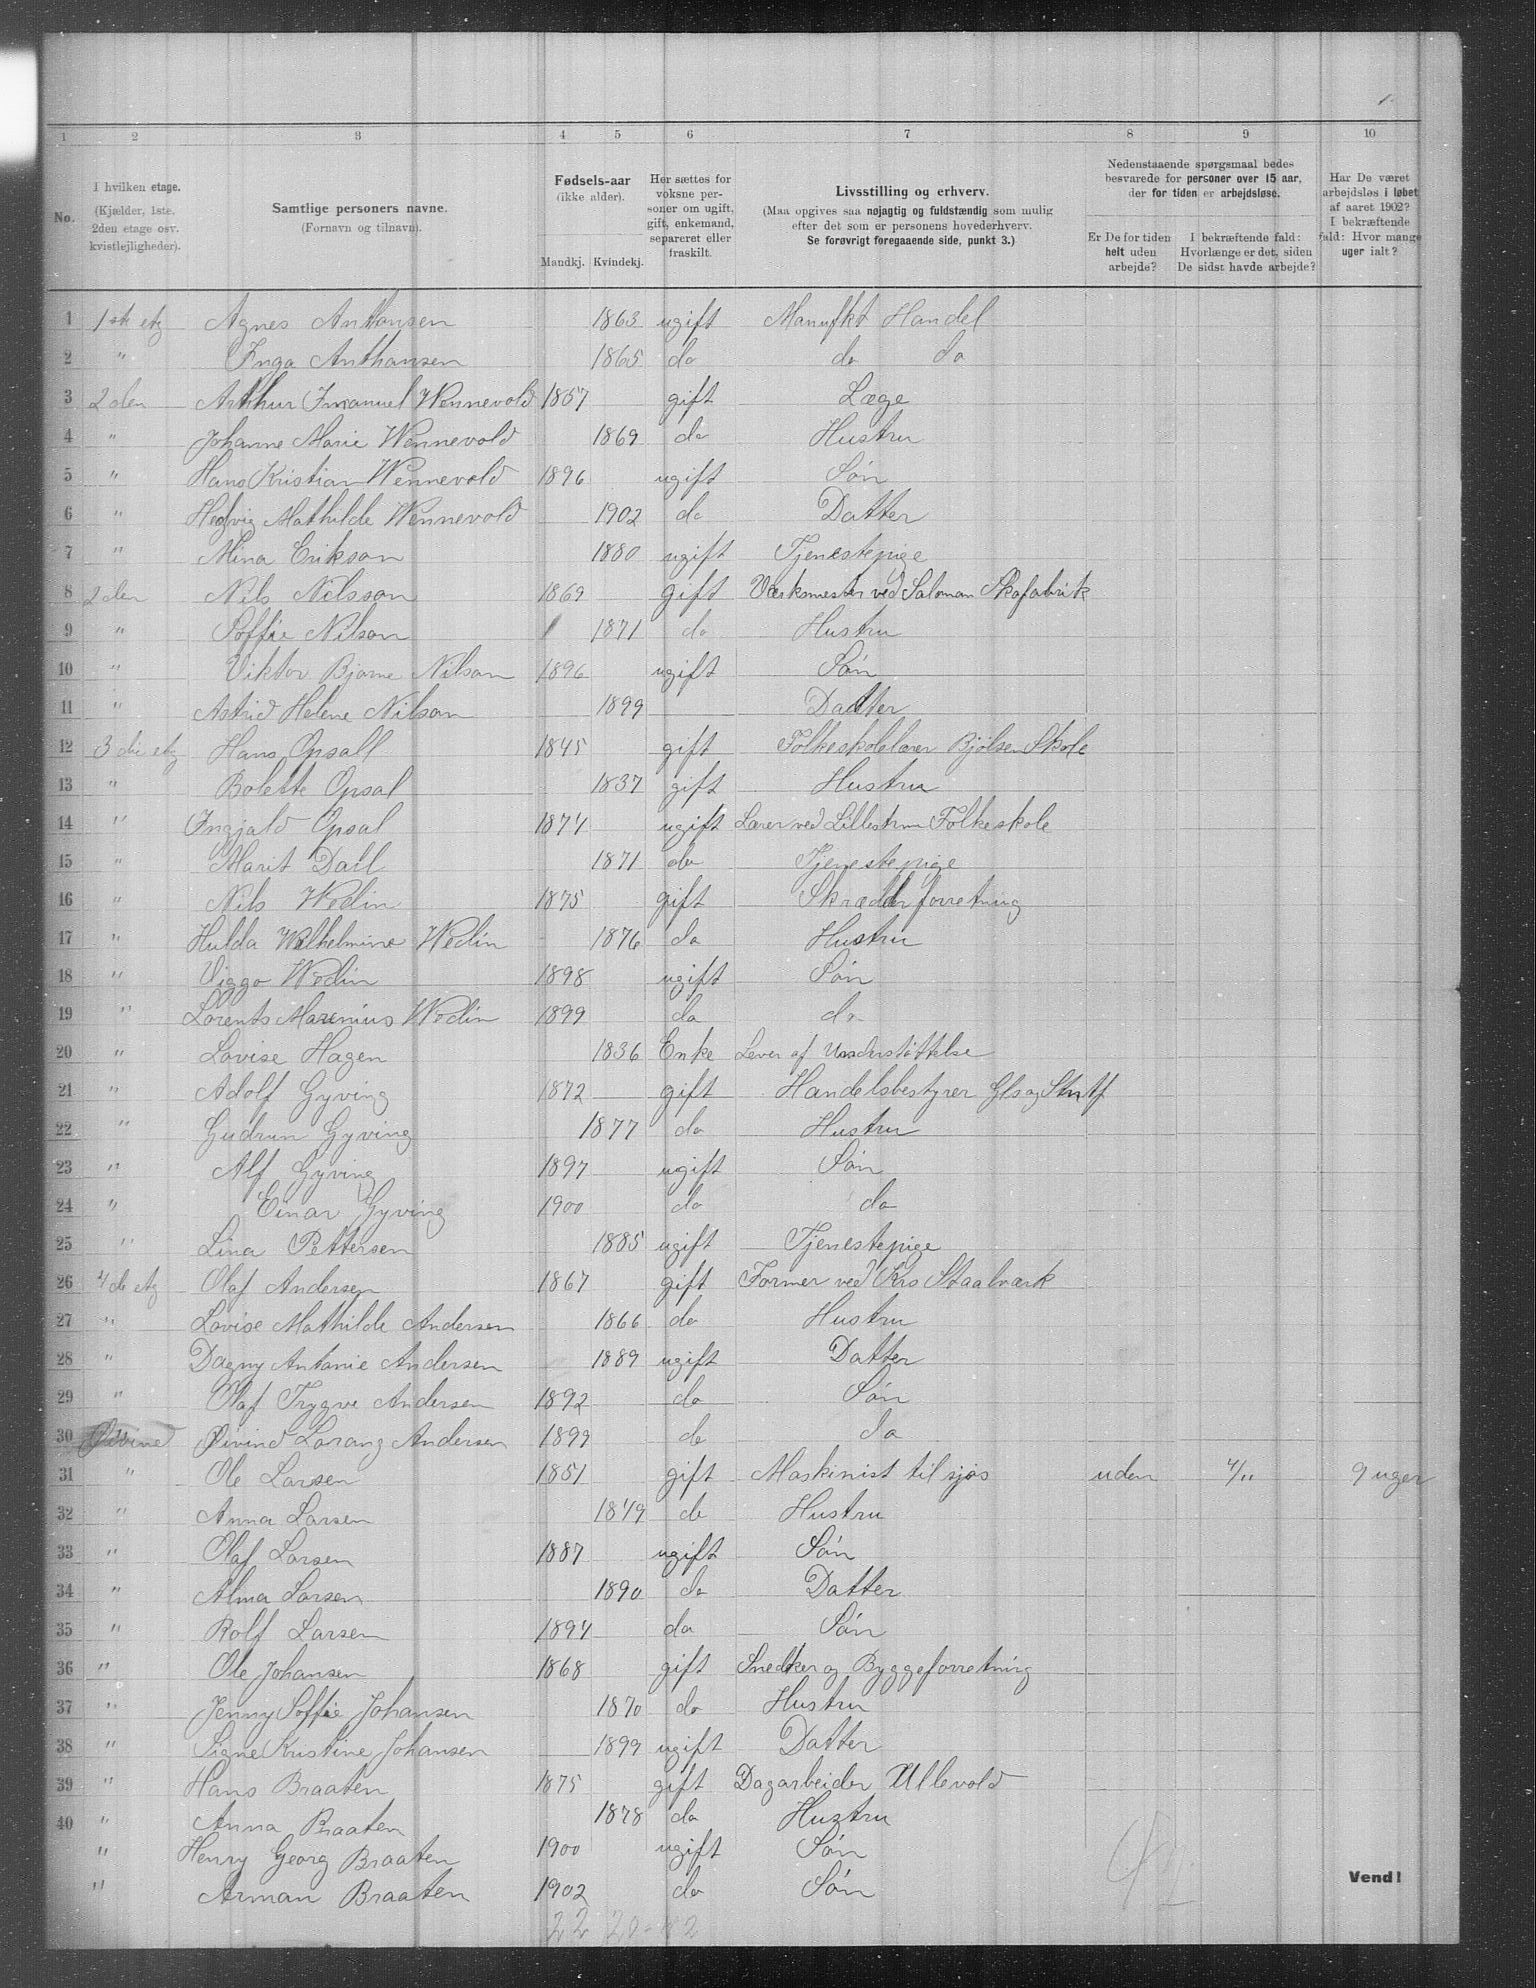 1 2 3 4 5 6 7 8 9 10
No.
I hvilken etage.
(Kjælder, 1ste,
2den etage osv.
kvistlejligheder).
Samtlige personers navne.
(Fornavn og tilnavn).
Fødsels-aar
(ikke alder).
Mandkj. Kvindekj.
Her sættes for
voksne per-
soner om ugift,
gift, enkemand,
separeret eller
fraskilt.
Livsstilling og erhverv.
(Maa opgives saa nøjagtig og fuldstændig som mulig
efter det som er personens hovederhverv.
Se forøvrigt foregaaende side, punkt 3.)
Nedenstaaende spørgsmaal bedes
besvarede for personer over 15 aar,
der for tiden er arbejdsløse.
Er De for tiden
helt uden
arbejde?
I bekræftende fald:
Hvorlænge er det, siden
De sidst havde arbejde?
Har De været
arbejdsløs i løbet
af aaret 1902?
I bekræftende
fald: Hvor mange
uger ialt?
1 1ste etg Agnes Anthonsen 1863 ugift Manufkt Handel
2 " Inga Anthonsen 1865 do do do
3 2den Arthur Imanuel Wennevold 1867 gift Læge
4 " Johanne Marie Wennevold 1869 do Hustru
5 " Hans Kristian Wennevold 1896 ugift Søn
6 " Hedvig Mathilde Wennevold 1902 do Datter
7 " Mina Erikson 1880 ugift Tjenestepige
8 2den Nils Nilsson 1869 gift Værksmester ved Saloman Skofabrik
9 " Soffie Nilson 1871 do Hustru
10 " Viktor Bjarne Nilson 1896 ugift Søn
11 " Astrid Helene Nilson 1899 Datter
12 3die etg Hans Opsall 1845 gift Folkeskolelærer Bjølsen Skole
13 " Bolette Opsal 1837 gift Hustru
14 " Ingjald Opsal 1874 ugift Lærer ved Lillestrøm Folkeskole
15 " Marit Dall 1871 do Tjenestepige
16 " Nils Wedin 1875 gift Skrædderforretning
17 " Hulda Wilhelmine Wedin 1876 do Hustru
18 " Viggo Wedin 1898 ugift Søn
19 " Lorents Marenius Wedin 1899 do do
20 " Lovise Hagen 1836 Enke Lever af Understøttelse
21 " Adolf Gyving 1872 gift Handelsbestyrer
22 " Gudrun Gyving 1877 do Hustru
23 " Alf Gyving 1897 ugift Søn
24 " Einar Gyving 1900 do do
25 " Lina Pettersen 1885 ugift Tjenestepige
26 4de etg Olaf Andersen 1867 gift Former ved Kra Staalværk
27 " Lovise Mathilde Andersen 1866 do Hustru
28 " Dagny Antonie Andersen 1889 ugift Datter
29 " Olaf Trygve Andersen 1892 do Søn
30 " Øivind Lorang Andersen 1899 do do
31 " Ole Larsen 1851 gift Maskinist til sjøs uden 4/11 9 uger
32 " Anna Larsen 1849 do Hustru
33 " Olaf Larsen 1887 ugift Søn
34 " Alma Larsen 1890 do Datter
35 " Rolf Larsen 1894 do Søn
36 " Ole Johansen 1868 gift Snedker og Byggeforretning
37 " Jenny Soffie Johansen 1870 do Hustru
38 " Signe Kristine Johansen 1899 ugift Datter
39 " Hans Braaten 1875 gift Dagarbeider Ullevold
40 " Anna Braaten 1878 do Hustru
" Henry Georg Braaten 1900 ugift Søn
" Arman Braaten 1902 do Søn
Vend!
22 20-42